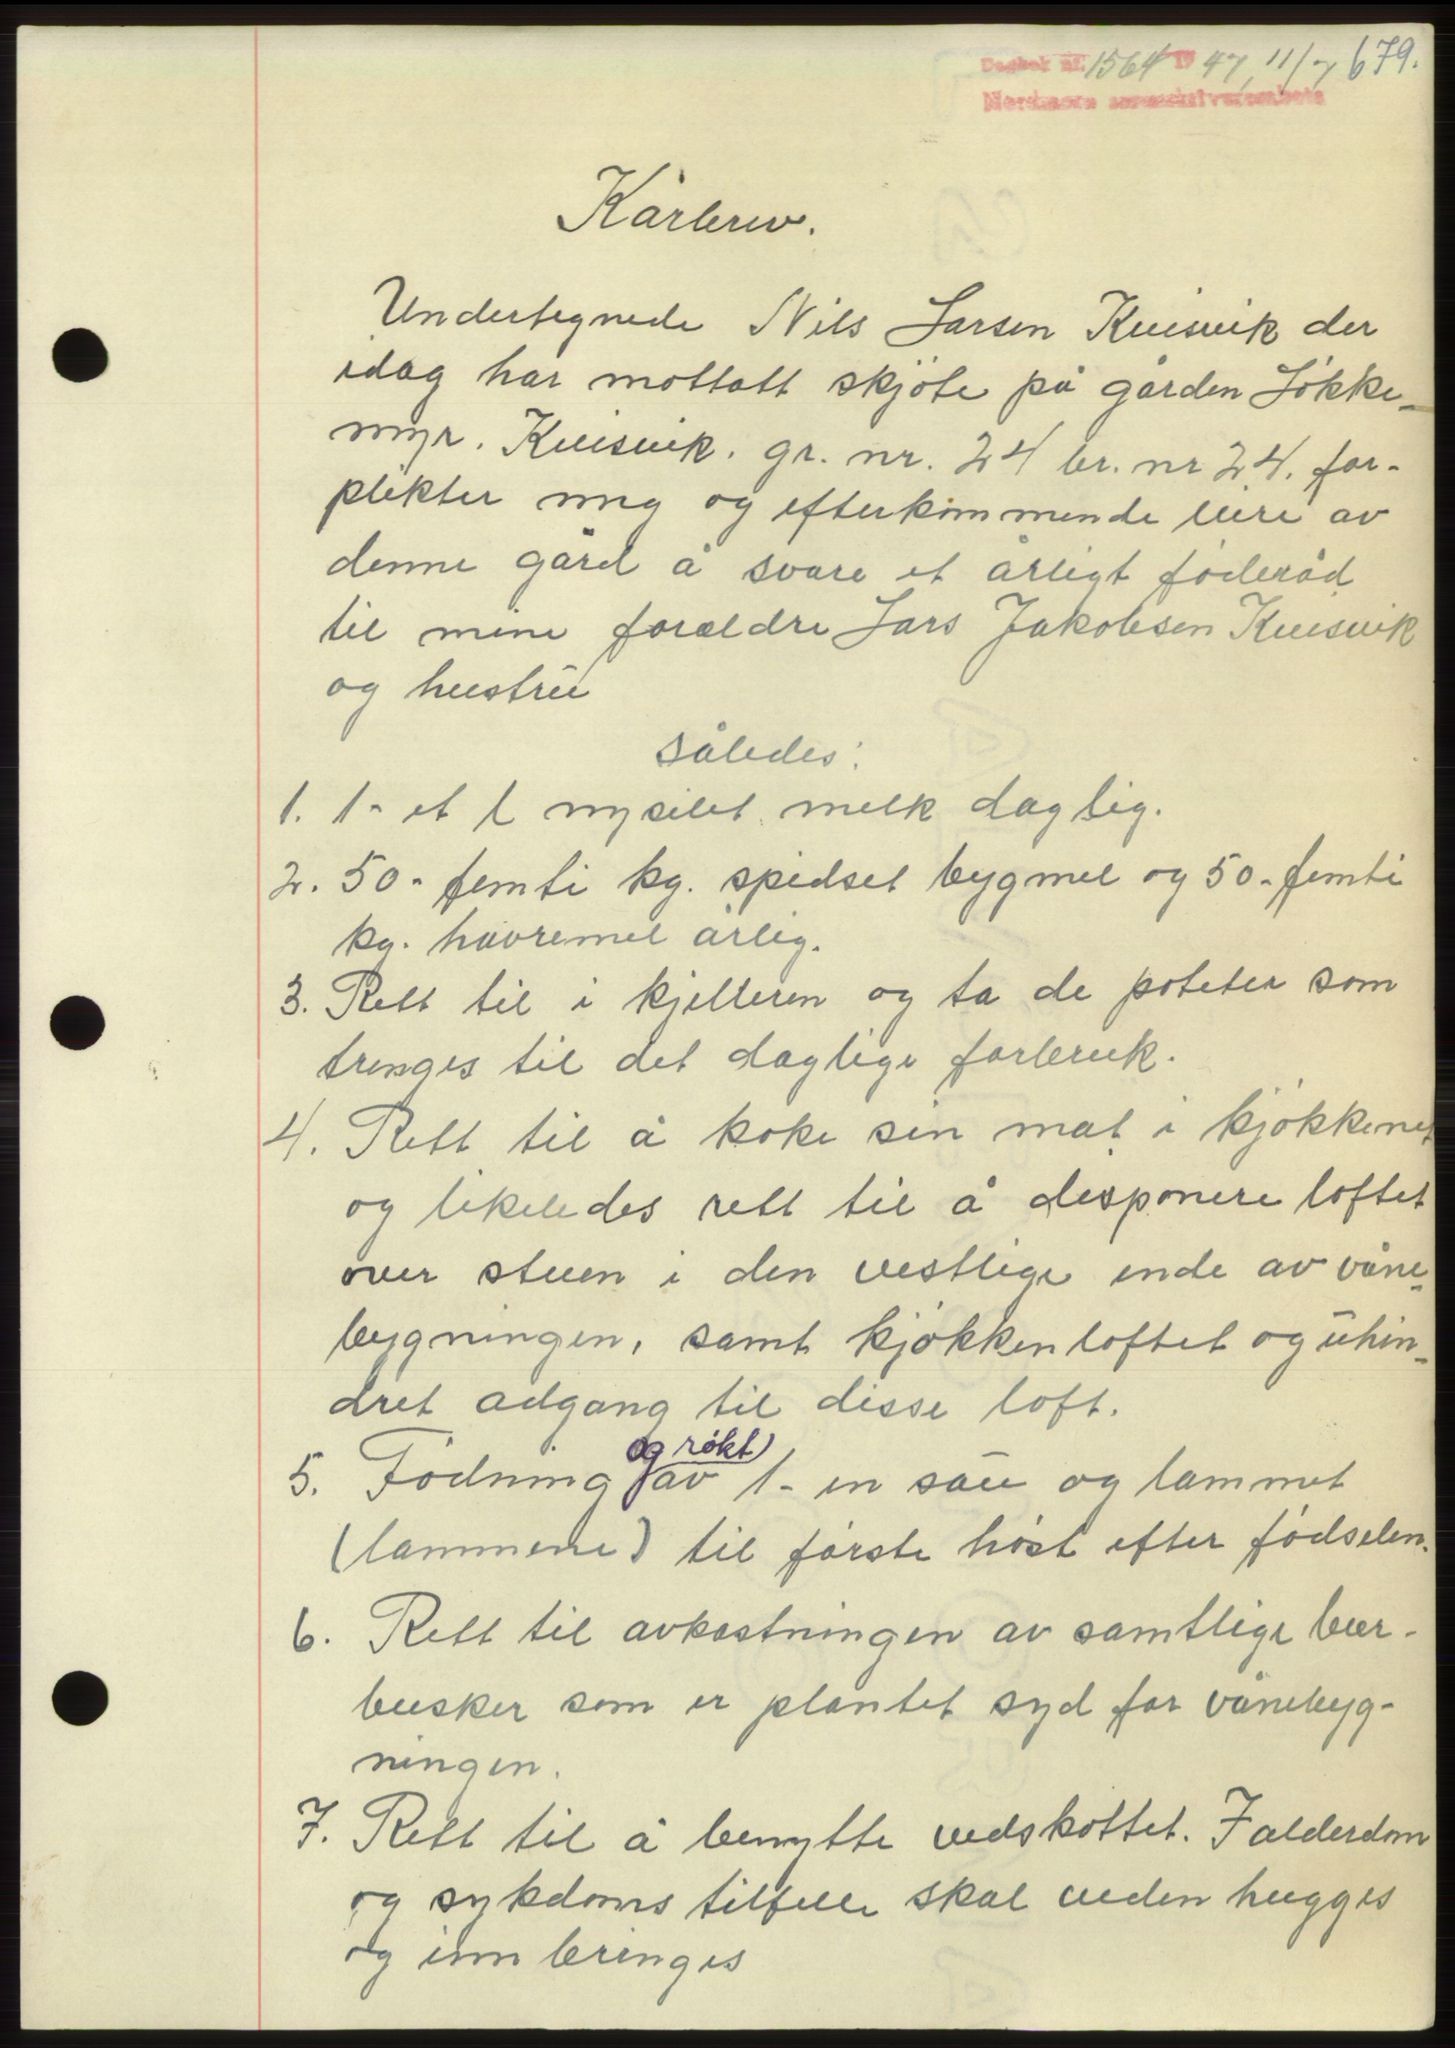 Dagbok nr. 1564 19 47, 11/7 679.
Nordmøre sorenskriverembete
Kårbrev.
Undertegnede Nils Larsen Kvisvik der
idag har mottatt skjøte på gården Løkke-
myr. Kvisvik. gr. nr. 24 br. nr 24. for-
plikter mig og efterkommende eiere av
denne gård å svare et årligt føderåd
til mine forældre Lars Jakobsen Kvisvik
og hustru
således:
1. 1- et l nysilet melk daglig.
2. 50- femti kg. spidset bygmel og 50- femti
kg. havremel årlig.
3. Rett til i kjelleren og ta de poteter som
trenges til det daglige forbruk.
4. Rett til å koke sin mat i kjøkkenet
og likeledes rett til å disponere loftet
over stuen i den vestlige ende av våne-
bygningen, samt kjøkkenloftet og uhin-
dret adgang til disse loft.
5. Fødning og røkt av 1- en sau og lammet
(lammene) til første høst efter fødselen.
6. Rett til avkastningen av samtlige bær-
busker som er plantet syd for vånebyg-
ningen.
7. Rett til å benytte vedskottet. I alderdom
og sykdoms tilfelle skal veden hugges
og innbringes